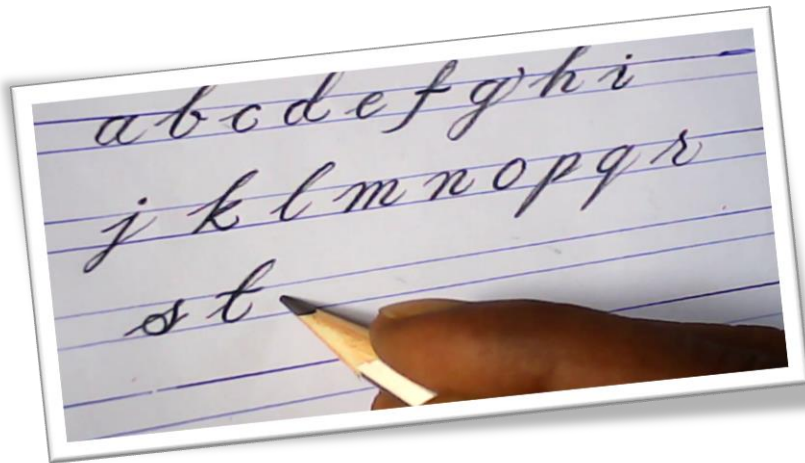 a b c d e f g h i
j k l m n o p q r
s t